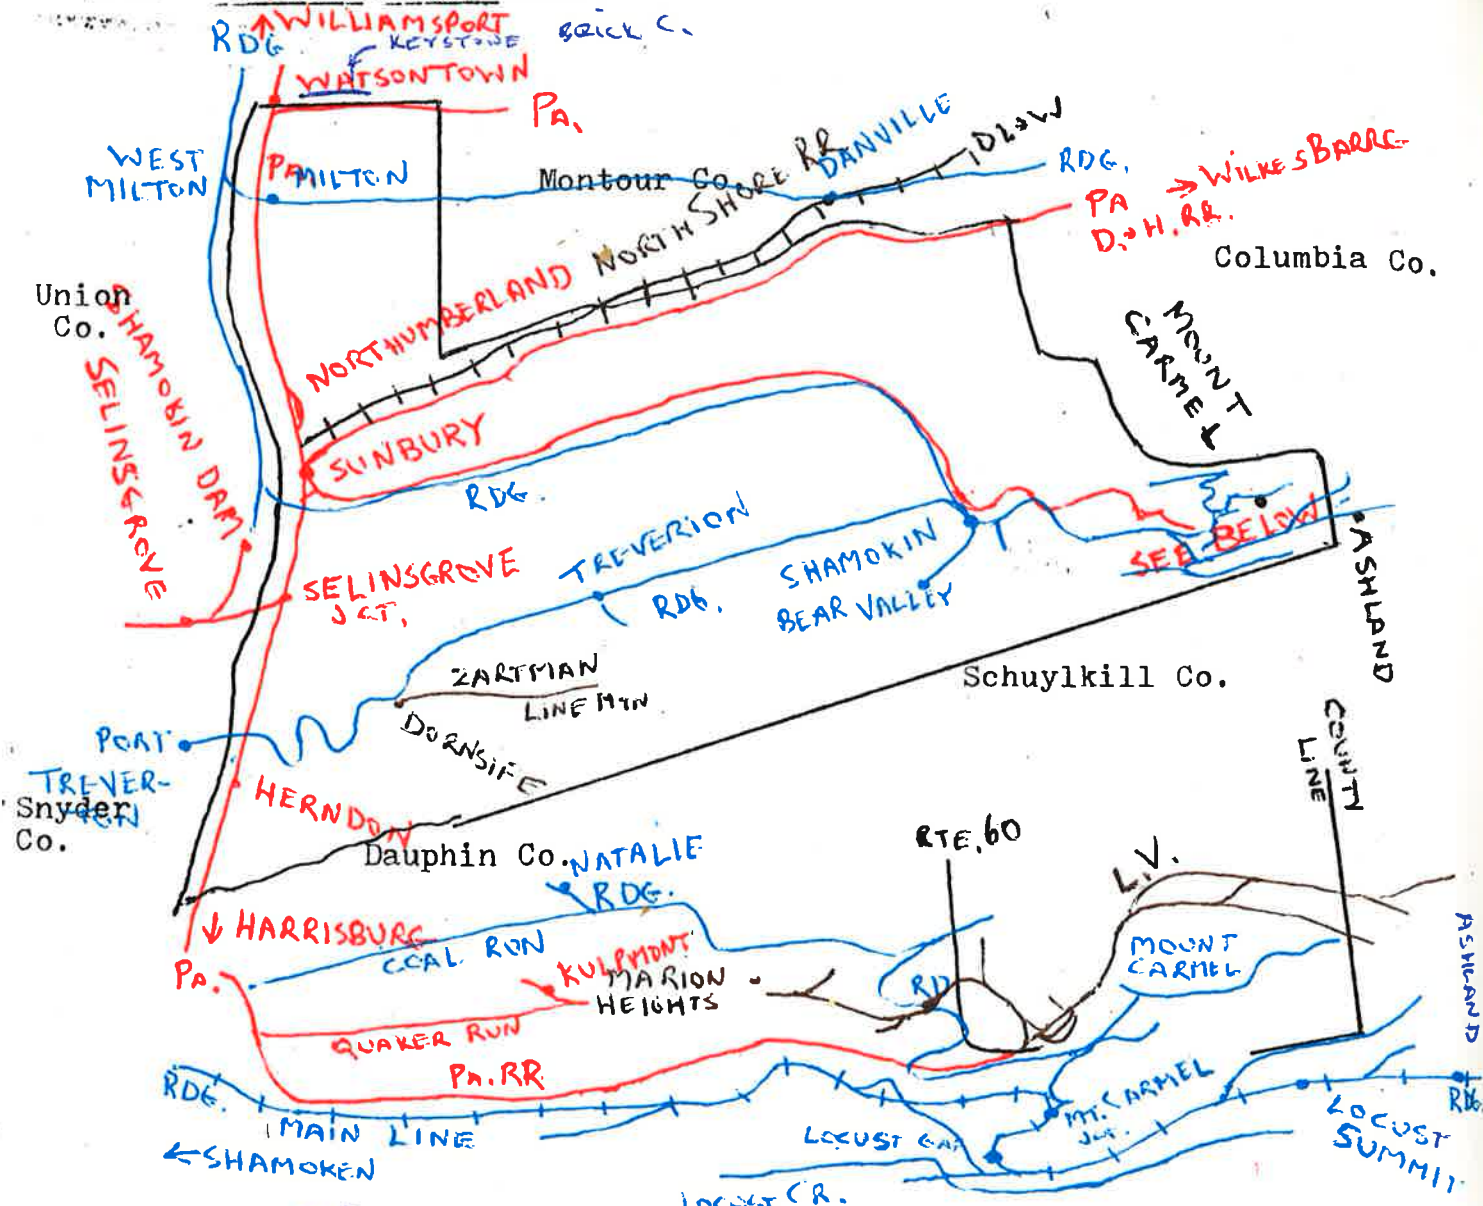 WILLIAMSPORT
RDG
KEYSTONE
BRICK C.
WATSONTOWN
PA.
WEST
MILTON
PA
MILTON
Montour Co.
NORTH SHORE RR
DANVILLE
DL&W
RDG.
PA → WILKESBARRE
D.&H. RR.
Columbia Co.
Union
Co.
SHAMOKIN DAM
SELINSGROVE
NORTHUMBERLAND
MOUNT
CARMEL
SUNBURY
RDG.
TREVERION
SHAMOKIN
BEAR VALLEY
RDG.
SEE BELOW
ASHLAND
SELINSGROVE
JCT.
ZARTMAN
LINE MTN
DORNSIFE
Schuylkill Co.
PORT
TREVER-
TON
Snyder
Co.
HERNDON
COUNTY
LINE
Dauphin Co.
NATALIE
RDG.
RTE. 60
L.V.
HARRISBURG
PA.
COAL RUN
KULPMONT
MARION
HEIGHTS
RD
MOUNT
CARMEL
ASHLAND
QUAKER RUN
PA. RR
RDG.
MAIN LINE
←SHAMOKEN
LOCUST GAP
MT. CARMEL
JCT.
LOCUST
SUMMIT
RDG
LOCUST CR.